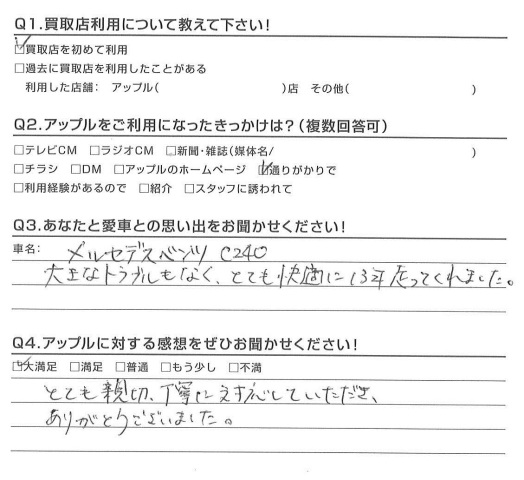 Q1.買取店利用について教えて下さい!
☑買取店を初めて利用
□過去に買取店を利用したことがある
利用した店舗: アップル( )店 その他( )
Q2.アップルをご利用になったきっかけは?(複数回答可)
□テレビCM □ラジオCM □新聞・雑誌(媒体名/ )
□チラシ □DM □アップルのホームページ ☑通りがかりで
□利用経験があるので □紹介 □スタッフに誘われて
Q3.あなたと愛車との思い出をお聞かせください!
車名: メルセデスベンツ C240
大きなトラブルもなく、とても快適に13年走ってくれました。
Q4.アップルに対する感想をぜひお聞かせください!
☑大満足 □満足 □普通 □もう少し □不満
とても親切、丁寧に対応していただき、
ありがとうございました。